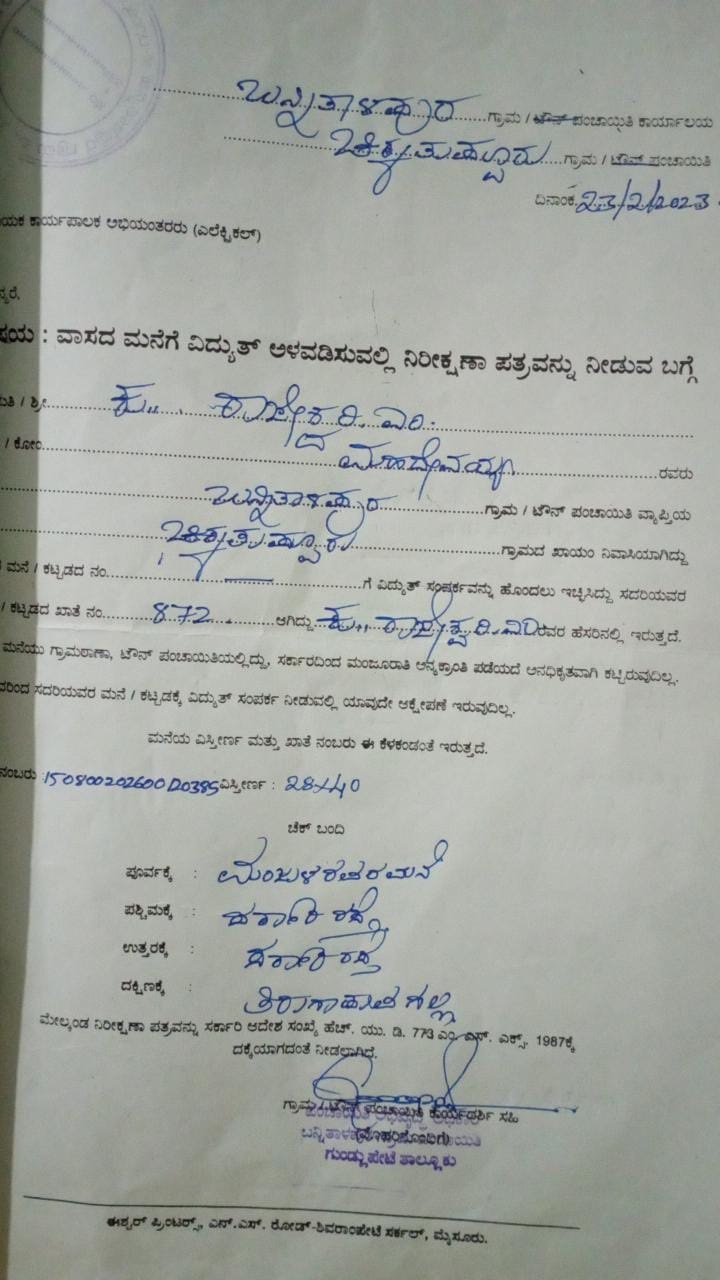 ಬನ್ನಿತಾಳಪುರ ಗ್ರಾಮ / ಟೌನ್ ಪಂಚಾಯಿತಿ ಕಾರ್ಯಾಲಯ
ಚಿಕ್ಕತುಪ್ಪೂರು ಗ್ರಾಮ / ಟೌನ್ ಪಂಚಾಯಿತಿ
ದಿನಾಂಕ 23/2/2023
ಯಕ ಕಾರ್ಯಪಾಲಕ ಅಭಿಯಂತರರು (ಎಲೆಕ್ಟ್ರಿಕಲ್)
ನ್ಯರೆ,
ಷಯ : ವಾಸದ ಮನೆಗೆ ವಿದ್ಯುತ್ ಅಳವಡಿಸುವಲ್ಲಿ ನಿರೀಕ್ಷಣಾ ಪತ್ರವನ್ನು ನೀಡುವ ಬಗ್ಗೆ
ಮತಿ / ಶ್ರೀ ಕು..
/ ಕೋಂ ಮಹದೇವಯ್ಯ ರವರು
ಬನ್ನಿತಾಳಪುರ ಗ್ರಾಮ / ಟೌನ್ ಪಂಚಾಯಿತಿ ವ್ಯಾಪ್ತಿಯ
ಚಿಕ್ಕತುಪ್ಪೂರು ಗ್ರಾಮದ ಖಾಯಂ ನಿವಾಸಿಯಾಗಿದ್ದು
ಮನೆ / ಕಟ್ಟಡದ ನಂ. ಗೆ ವಿದ್ಯುತ್ ಸಂಪರ್ಕವನ್ನು ಹೊಂದಲು ಇಚ್ಛಿಸಿದ್ದು ಸದರಿಯವರ
/ ಕಟ್ಟಡದ ಖಾತೆ ನಂ. 872 ಆಗಿದ್ದು ಕು.. ರಾಜೇಶ್ವರಿ. ಎಂ ರವರ ಹೆಸರಿನಲ್ಲಿ ಇರುತ್ತದೆ.
ಮನೆಯು ಗ್ರಾಮಠಾಣಾ, ಟೌನ್ ಪಂಚಾಯಿತಿಯಲ್ಲಿದ್ದು, ಸರ್ಕಾರದಿಂದ ಮಂಜೂರಾತಿ ಅನ್ಯಕ್ರಾಂತಿ ಪಡೆಯದೆ ಅನಧಿಕೃತವಾಗಿ ಕಟ್ಟಿರುವುದಿಲ್ಲ.
ದರಿಂದ ಸದರಿಯವರ ಮನೆ / ಕಟ್ಟಡಕ್ಕೆ ವಿದ್ಯುತ್ ಸಂಪರ್ಕ ನೀಡುವಲ್ಲಿ ಯಾವುದೇ ಆಕ್ಷೇಪಣೆ ಇರುವುದಿಲ್ಲ.
ಮನೆಯ ವಿಸ್ತೀರ್ಣ ಮತ್ತು ಖಾತೆ ನಂಬರು ಈ ಕೆಳಕಂಡಂತೆ ಇರುತ್ತದೆ.
ನಂಬರು : 150800202600120385 ವಿಸ್ತೀರ್ಣ : 28x40
ಚೆಕ್ ಬಂದಿ
ಪೂರ್ವಕ್ಕೆ :
ಪಶ್ಚಿಮಕ್ಕೆ : ಸರ್ಕಾರಿ ರಸ್ತೆ
ಉತ್ತರಕ್ಕೆ : ಸರ್ಕಾರಿ ರಸ್ತೆ
ದಕ್ಷಿಣಕ್ಕೆ :
ಮೇಲ್ಕಂಡ ನಿರೀಕ್ಷಣಾ ಪತ್ರವನ್ನು ಸರ್ಕಾರಿ ಆದೇಶ ಸಂಖ್ಯೆ ಹೆಚ್. ಯು. ಡಿ. 773 ಎಂ. ಎಸ್. ಎಕ್ಸ್. 1987ಕ್ಕೆ
ದಕ್ಕೆಯಾಗದಂತೆ ನೀಡಲಾಗಿದೆ.
ಗ್ರಾಮ / ಟೌನ್ ಪಂಚಾಯಿತಿ ಕಾರ್ಯದರ್ಶಿ ಸಹಿ
(ಮೊಹರಿನೊಂದಿಗೆ)
ಗುಂಡ್ಲುಪೇಟೆ ತಾಲ್ಲೂಕು
ಈಶ್ವರ್ ಪ್ರಿಂಟರ್ಸ್, ಎನ್.ಎಸ್. ರೋಡ್-ಶಿವರಾಂಪೇಟೆ ಸರ್ಕಲ್, ಮೈಸೂರು.